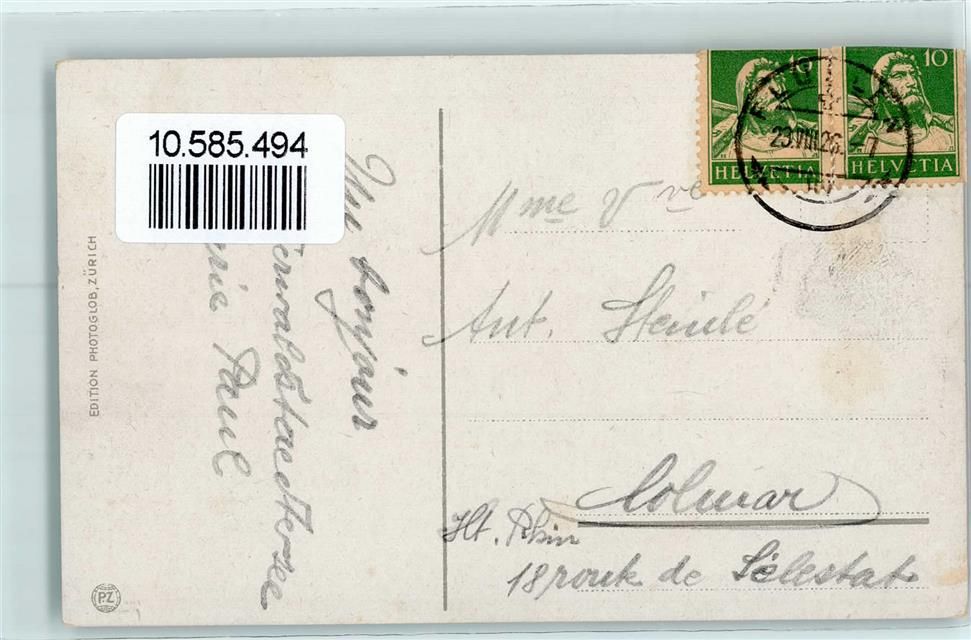 10.585.494
10
HELVETIA
HELVETIA
23.VIII.26.-7
Un bonjour
Vierwaldstaettersee
Paul
Mme Vve
Ant. Heinlé
Colmar
Ht. Rhin
18 route de Sélestat
EDITION PHOTOGLOB, ZÜRICH
PZ